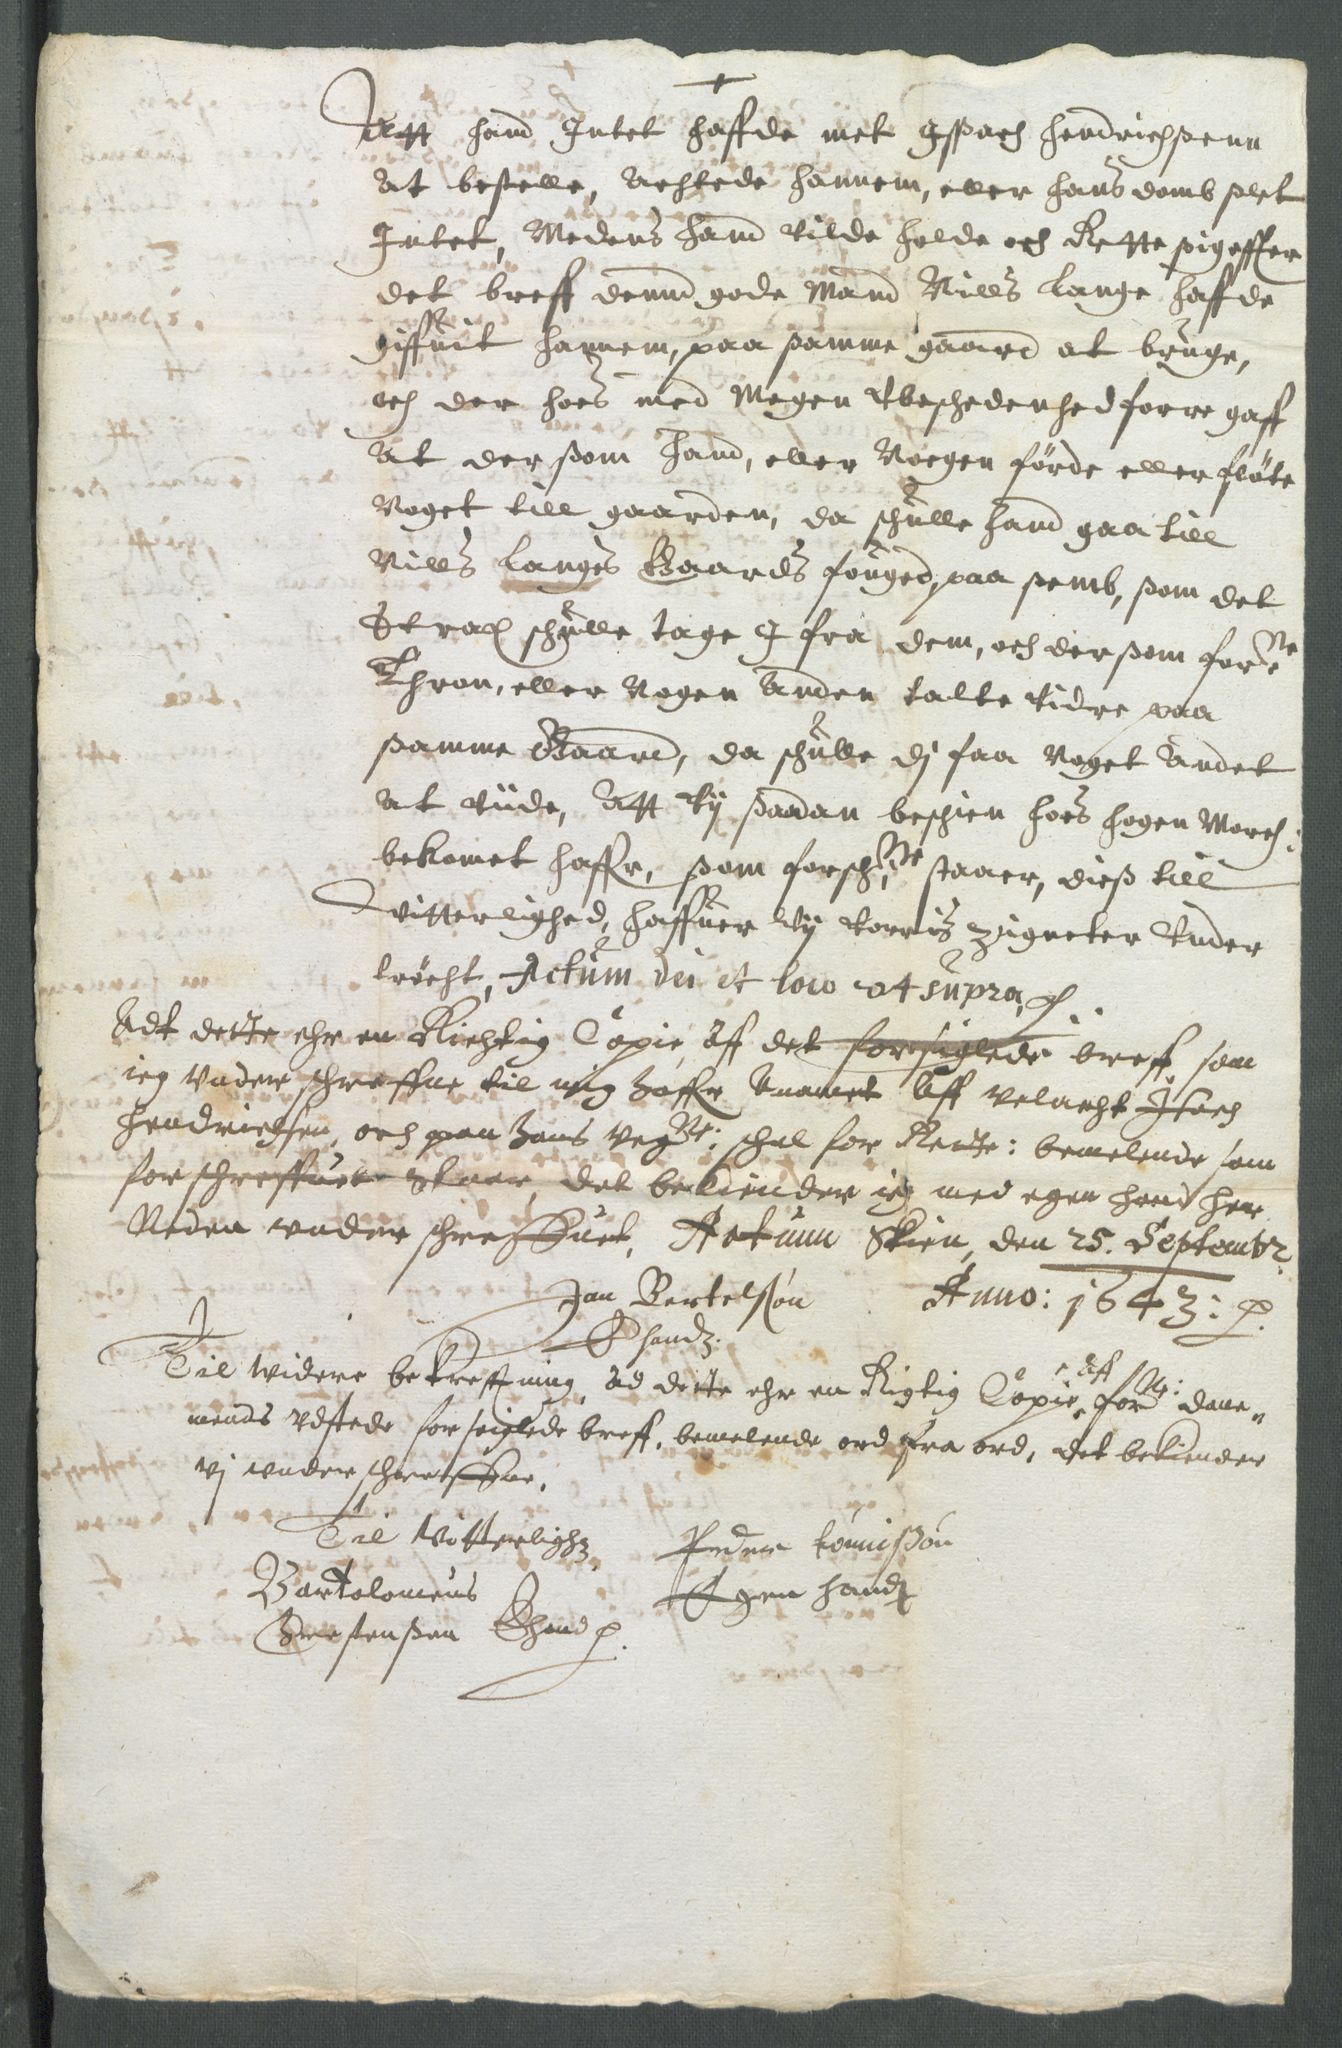 Att hand Intet haffde met Issach Hendrichsenn
at bestelle, achtede hannem, eller hans domb slet
Intet, Medens hand vilde holde och Rette sig effter
det breff dennd gode Mand Nills Lange haffde
giffuit hannem, paa samme gaard at brüge,
och der hoes med Megen Vbeschedenhed forre gaff
at der som hand, eller Nogen förde eller fløte
Noget till gaarden, da schulle hand gaa till
Nills Langes Gaards fouged, paa semb, som det
Strax schulle tage I fra dem, och der som forne
Thron, eller Nogen anden talte vidre paa
samme Gaard, da schulle dj faa Noget andet
at vide, Att vij saadan beschien hoes Hogen Morch:
bekomet haffr, som forschne staaer, diss till
vitterlighed, haffuer vij vorris zigneter vnder
tröcht, Actum die et loco ut supra
Adt dette ehr en Richtig Copie aff det forsiglede breff som
ieg vnder schreffne til mig haffr annamet aff velacht Isach
Hendrichsen, och paa hans vegne: schal for Rette: bemelende som
forschreffuet staar, det bekiender ieg med egen hand her
Neden vnder schreffuet, Actum Skien, den 25. Septembr
Anno: 1643:
Jan Bertelsøn
E hand
Til widere bekrefftning, ad dette ehr en Rigtig Copie aff forne: dane„
mends vdstede forseiglede breff, bemelende ord fra ord, det bekiender
vj vnderschreffne.
Til Vitterlighed
Bartolomeus
E hand
Peder
Egen hand